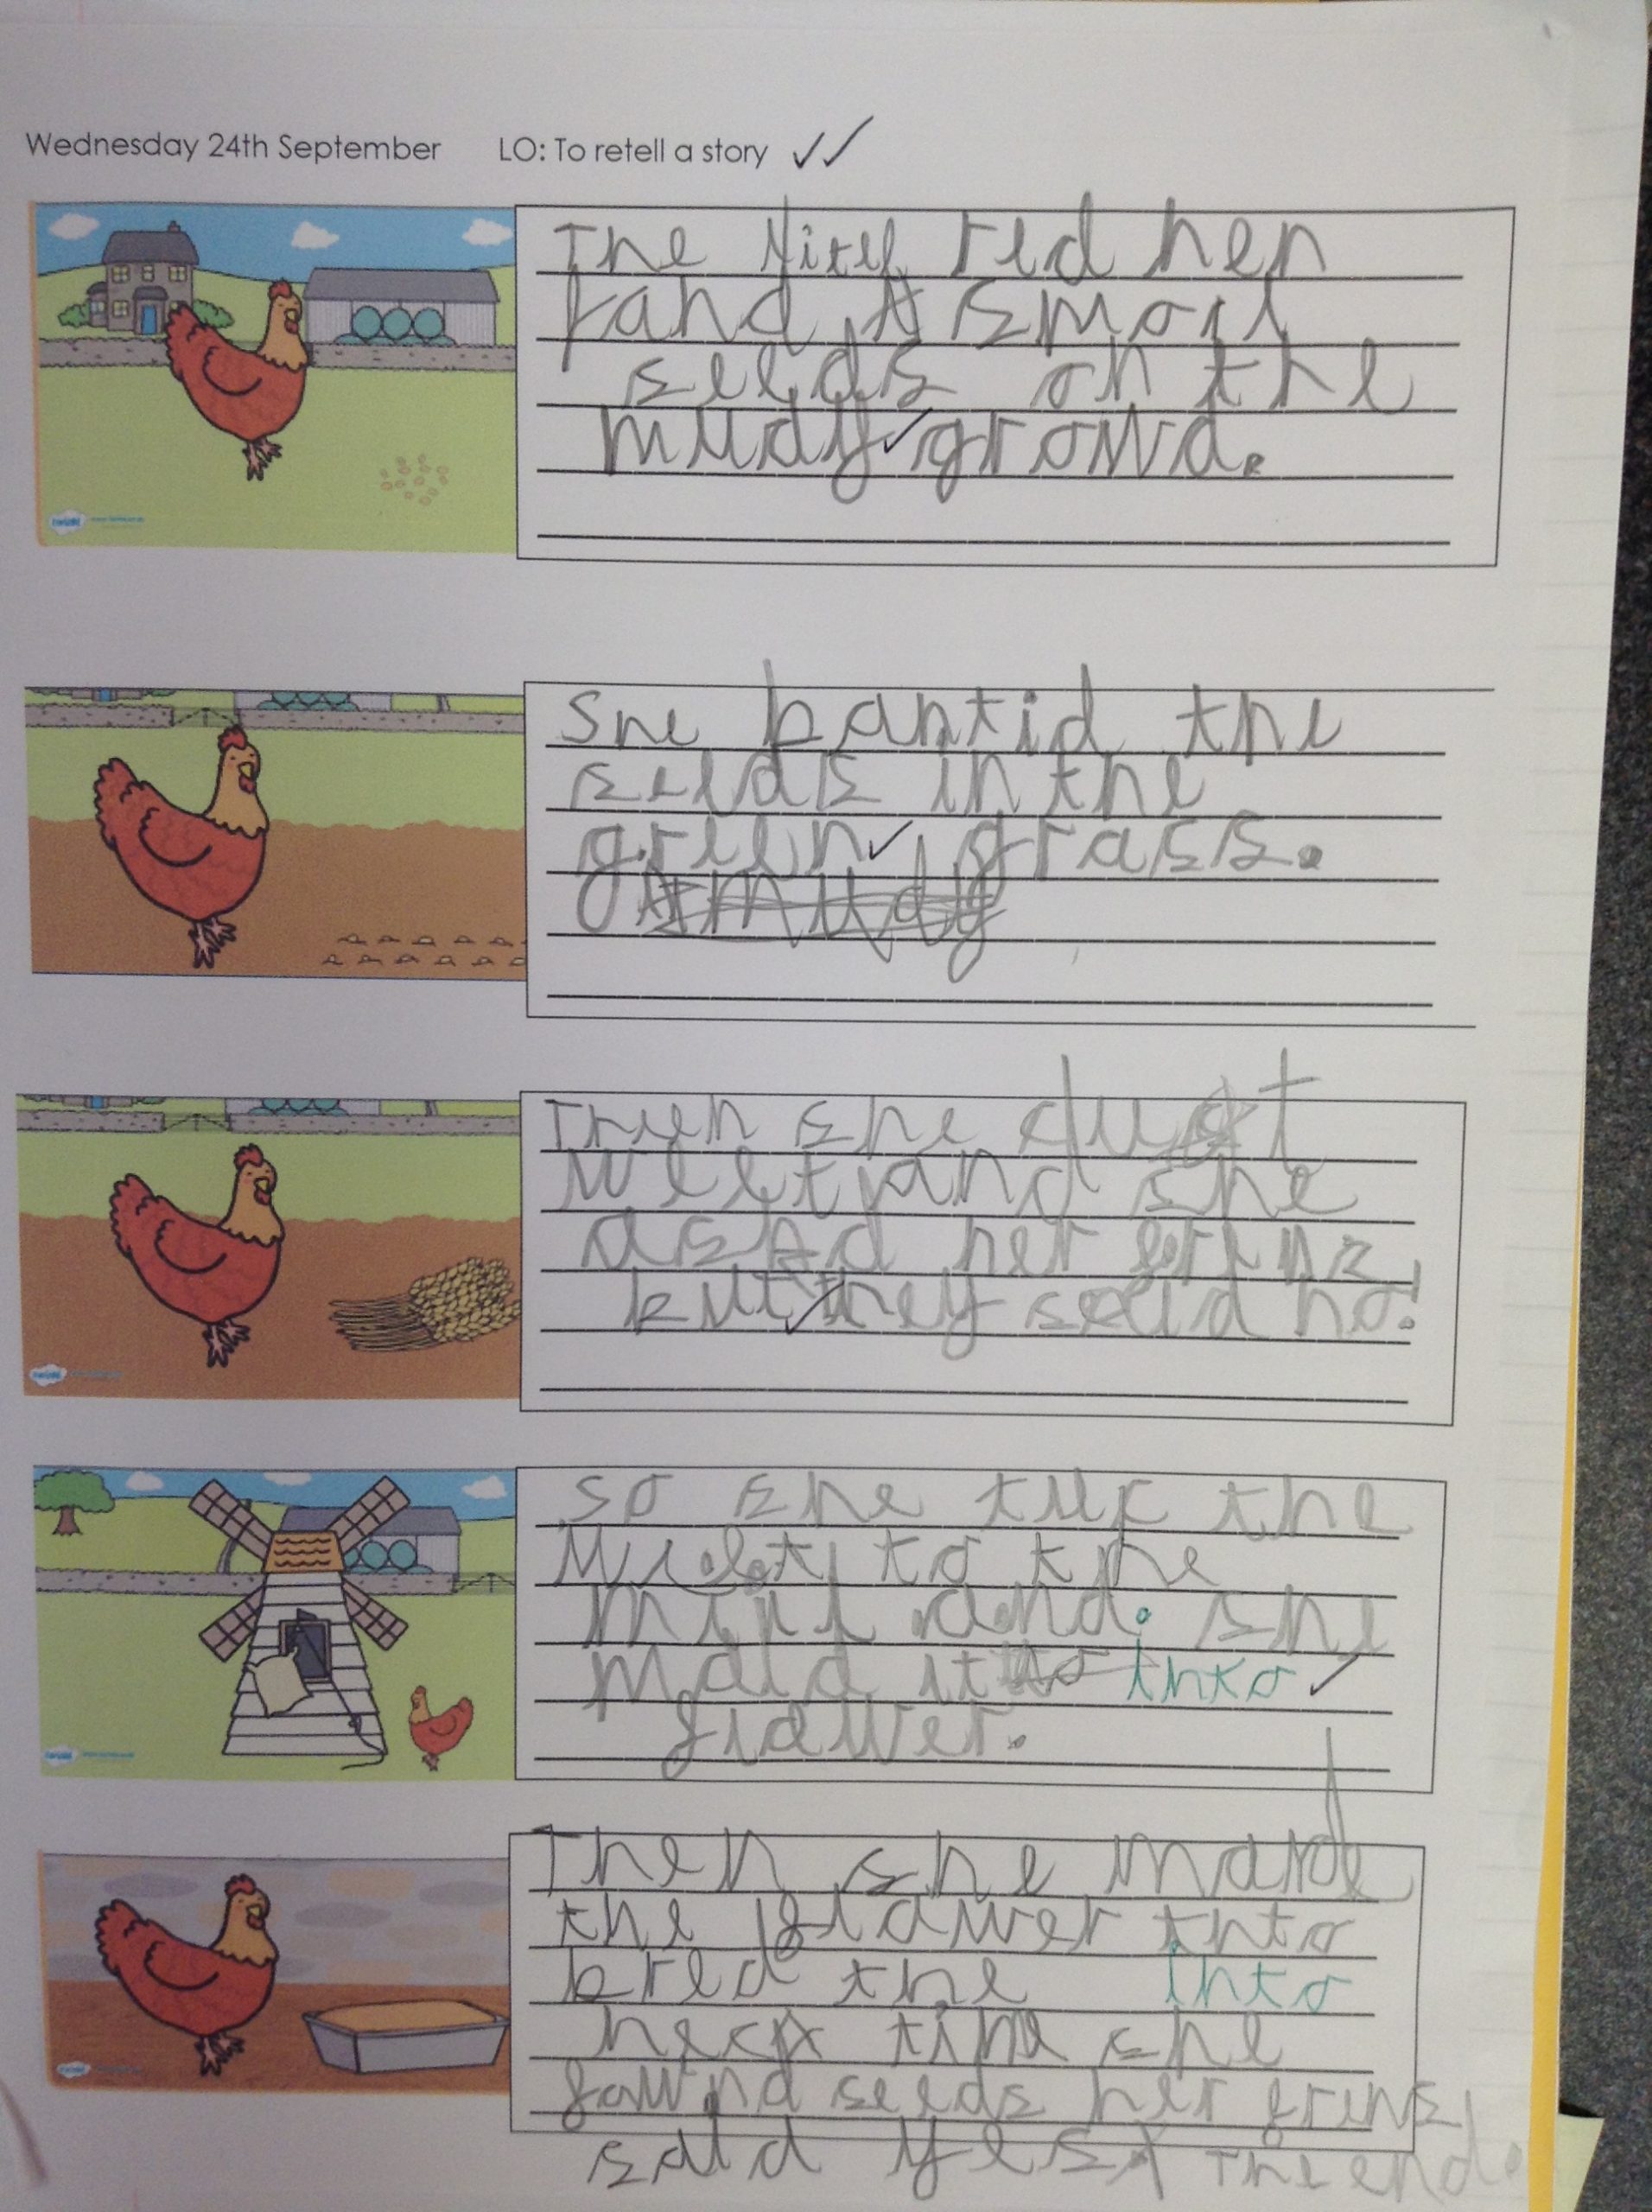 Wednesday 24th September LO: To retell a story
The litel red hen
fand A small
seeds on the
mudy grownd.
She bantid the
seeds in the
green grass.
mudy
Then she
weet and she
askd her frinz
but they said no!
So she tuk the
to the
mill and. she
maid it into
flawer.
Then she made
the flawer into
bred the into
necx time she
fawnd seeds her frins
said yes The end.